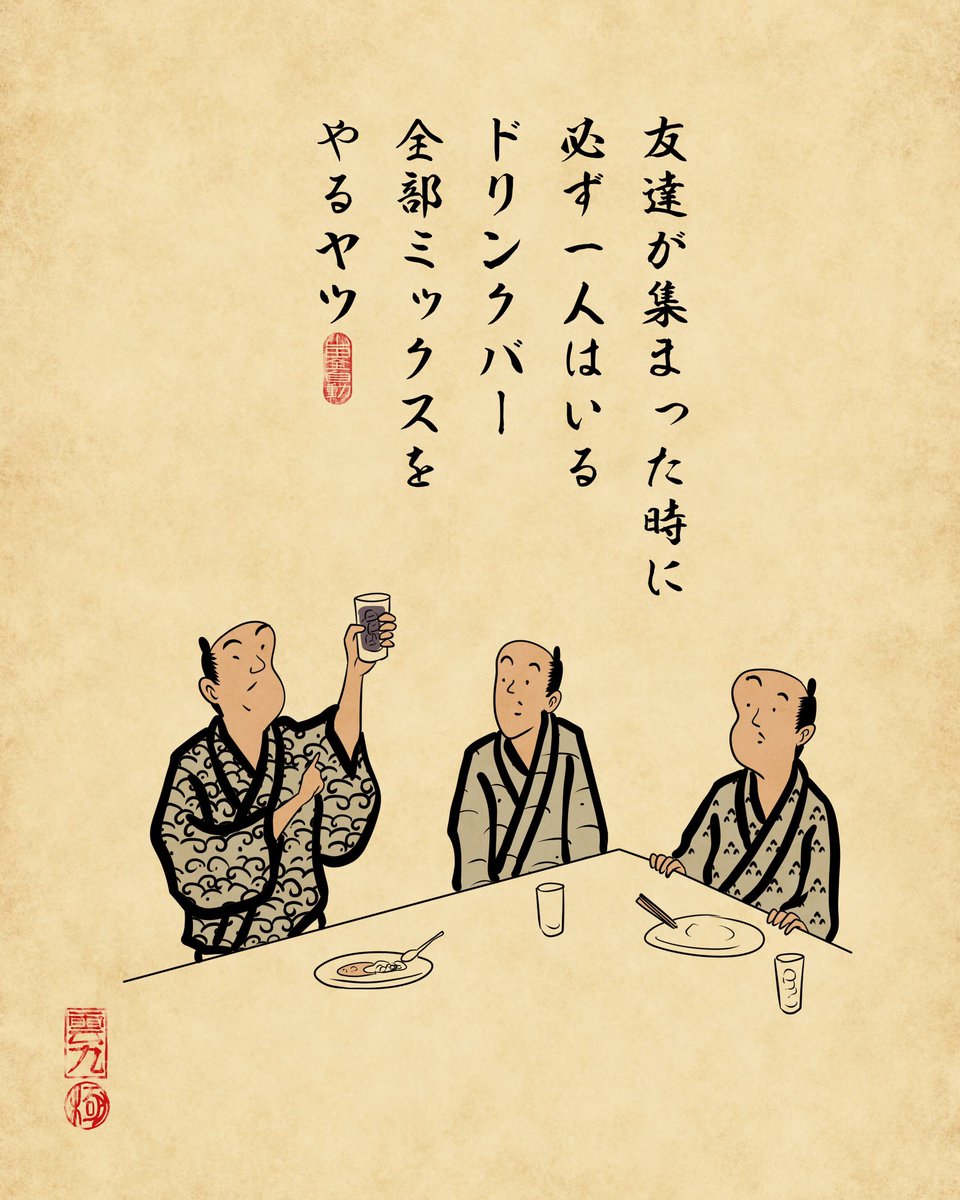 友達が集まった時に
必ず一人はいる
ドリンクバー
全部ミックスを
やるヤツ